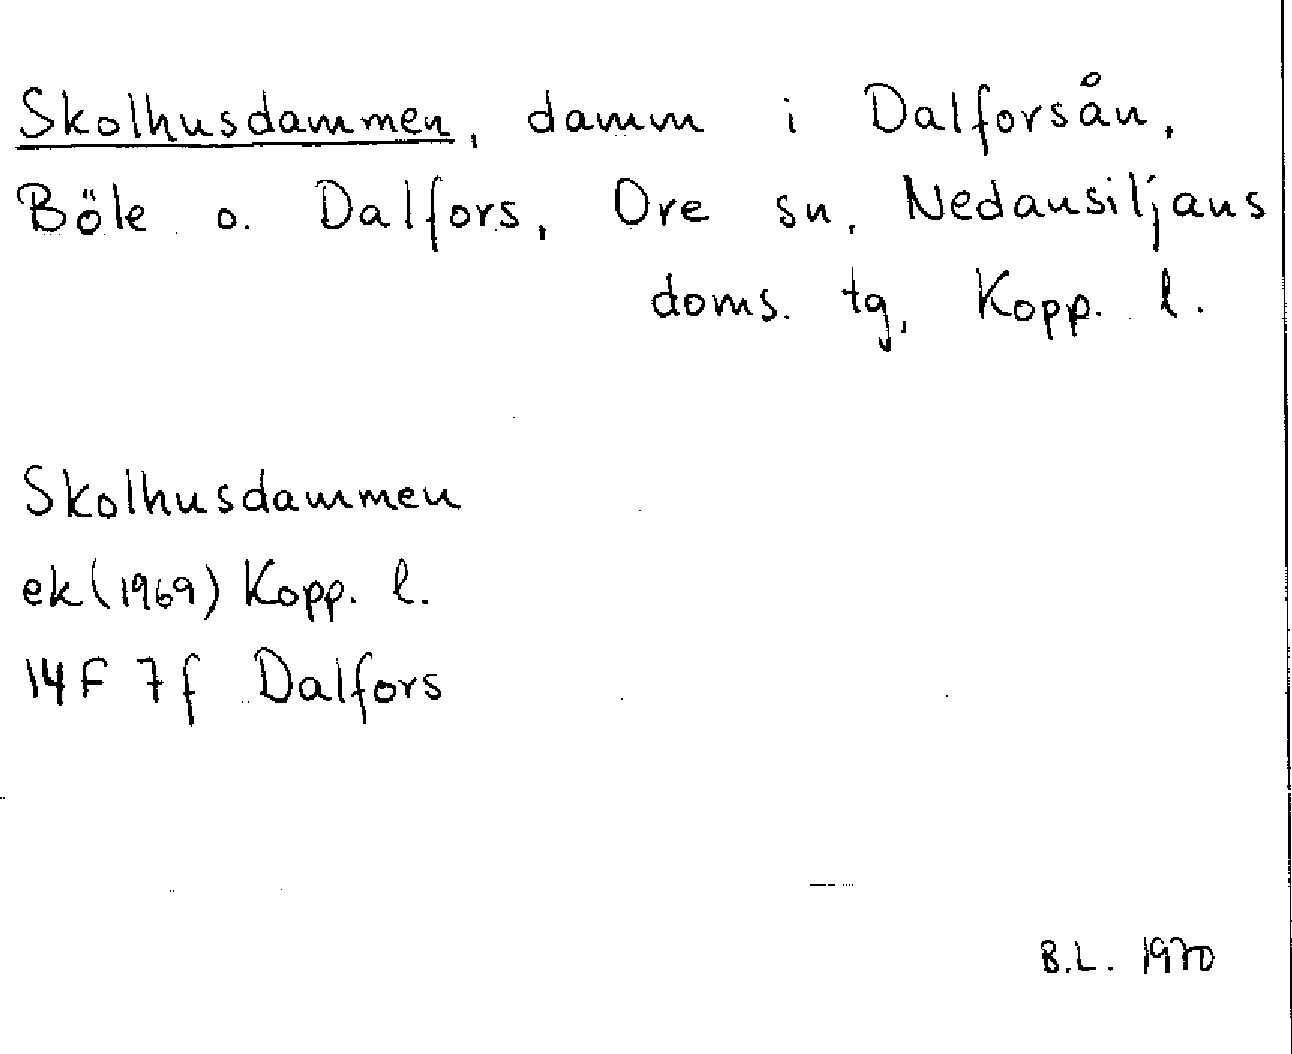 Skolhusdammen, damm i Dalforsån,
Böle o. Dalfors, Ore sn, Nedansiljans
doms. tg, Kopp. l.
Skolhusdammen
ek (1969) Kopp. l.
14F 7f Dalfors
B.L. 1970